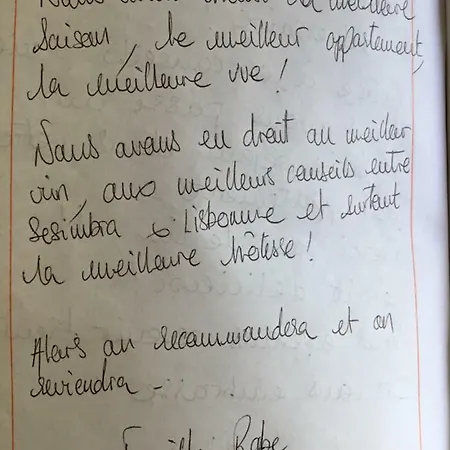 Nous avons choisi la meilleure
saison, le meilleur appartement,
la meilleure vue !
Nous avons eu droit au meilleur
vin, aux meilleurs conseils entre
Sesimbra & Lisbonne et surtout
la meilleure hôtesse !
Alors on recommandera et on
reviendra -
Famille Rabe